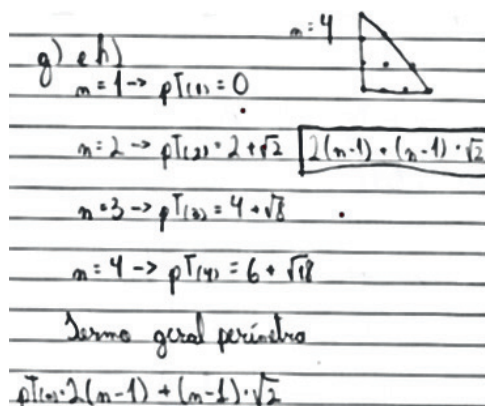 n=4
g) e h)
n=1 -> pT(1) = 0
n=2 -> pT(2) = 2 + √2 2(n-1) + (n-1)·√2
n=3 -> pT(3) = 4 + √8
n=4 -> pT(4) = 6 + √18
Termo geral perímetro
pT(n) = 2(n-1) + (n-1)·√2